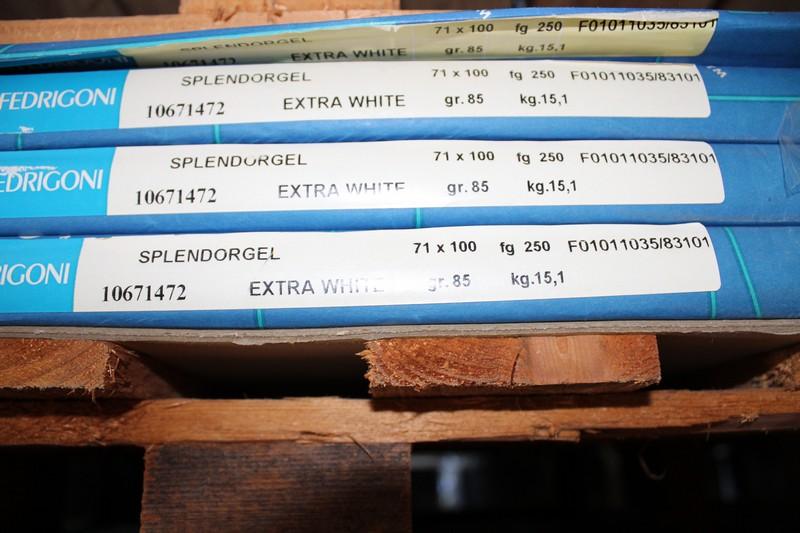 SPLENDORGEL 71 x 100 fg 250 F01011035/83101
EXTRA WHITE gr. 85 kg.15,1
FEDRIGONI SPLENDORGEL 71 x 100 fg 250 F01011035/83101
10671472 EXTRA WHITE gr. 85 kg.15,1
EDRIGONI SPLENDORGEL 71 x 100 fg 250 F01011035/83101
10671472 EXTRA WHITE gr. 85 kg.15,1
RIGONI SPLENDORGEL 71 x 100 fg 250 F01011035/83101
10671472 EXTRA WHITE gr. 85 kg.15,1